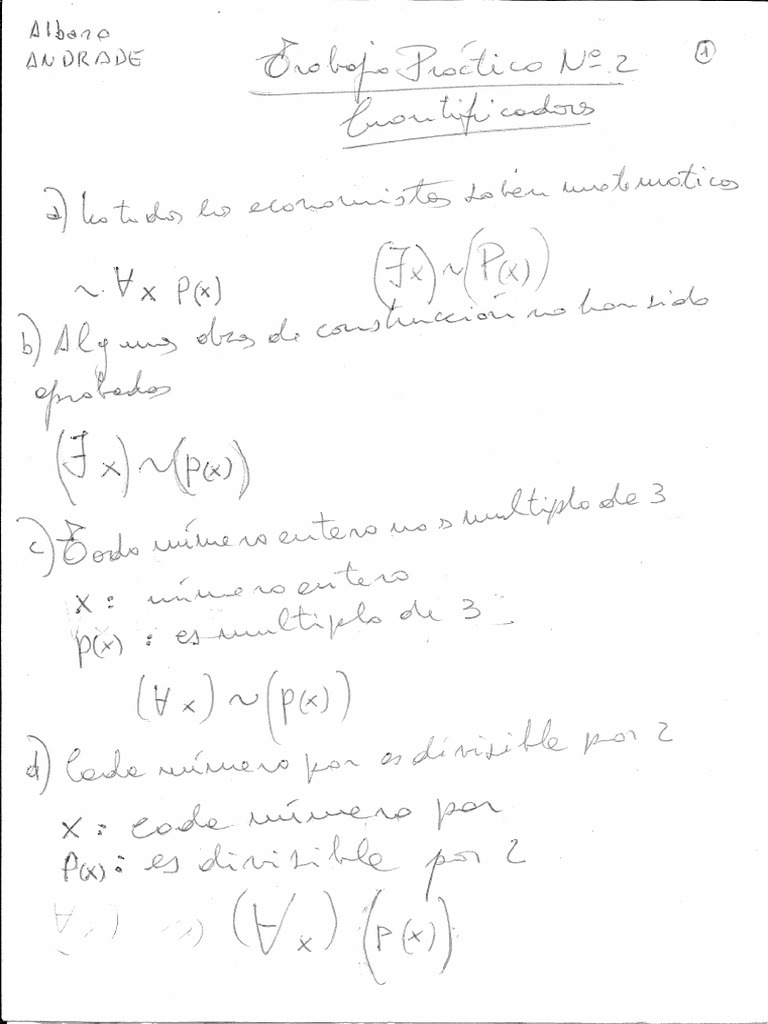 Albano
ANDRADE
Trabajo Práctico Nº 2
①
Cuantificadores
a) No todos los economistas saben matemática
~ ∀x P(x) (∃x) ~ (P(x))
b) Algunas obras de construcción no han sido
aprobadas
(∃x) ~ (p(x))
c) Todo número entero no es multiplo de 3
x : número entero
p(x) : es multiplo de 3
(∀x) ~ (p(x))
d) Cada número par es divisible por 2
x : cada número par
P(x) : es divisible por 2
(∀x) (P(x))